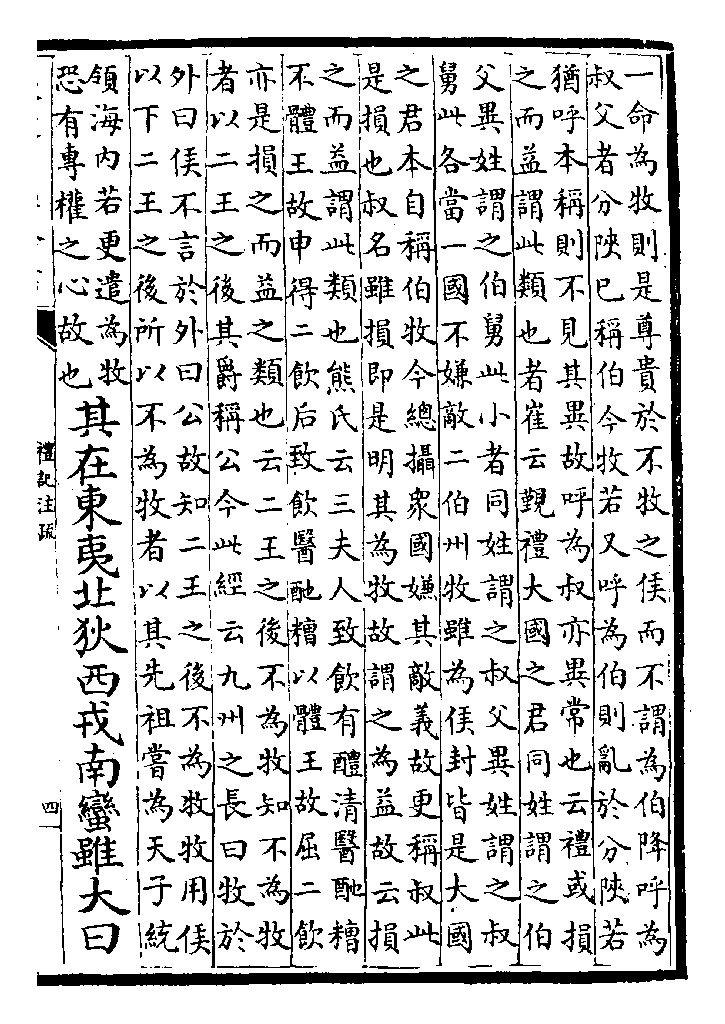 一命為牧則是尊貴於不牧之侯而不謂為伯降呼為
叔父者分陝已稱伯今牧若又呼為伯則亂於分陝若
猶呼本稱則不見其異故呼為叔亦異常也云禮或損
之而益謂此類也者崔云覲禮大國之君同姓謂之伯
父異姓謂之伯舅此小者同姓謂之叔父異姓謂之叔
舅此各當一國不嫌敵二伯州牧雖為侯封皆是大國
之君本自稱伯牧今總攝衆國嫌其敵義故更稱叔此
是損也叔名雖損即是明其為牧故謂之為益故云損
之而益謂此類也熊氏云三夫人致飲有醴清醫酏糟
不體王故申得二飲后致飲醫酏糟以體王故屈二飲
亦是損之而益之類也云二王之後不為牧知不為牧
者以二王之後其爵稱公今此經云九州之長曰牧於
外曰侯不言於外曰公故知二王之後不為牧牧用侯
以下二王之後所以不為牧者以其先祖嘗為天子統
領海內若更遣為牧
恐有專權之心故也
其在東夷北狄西戎南蠻雖大曰
禮記注疏
四